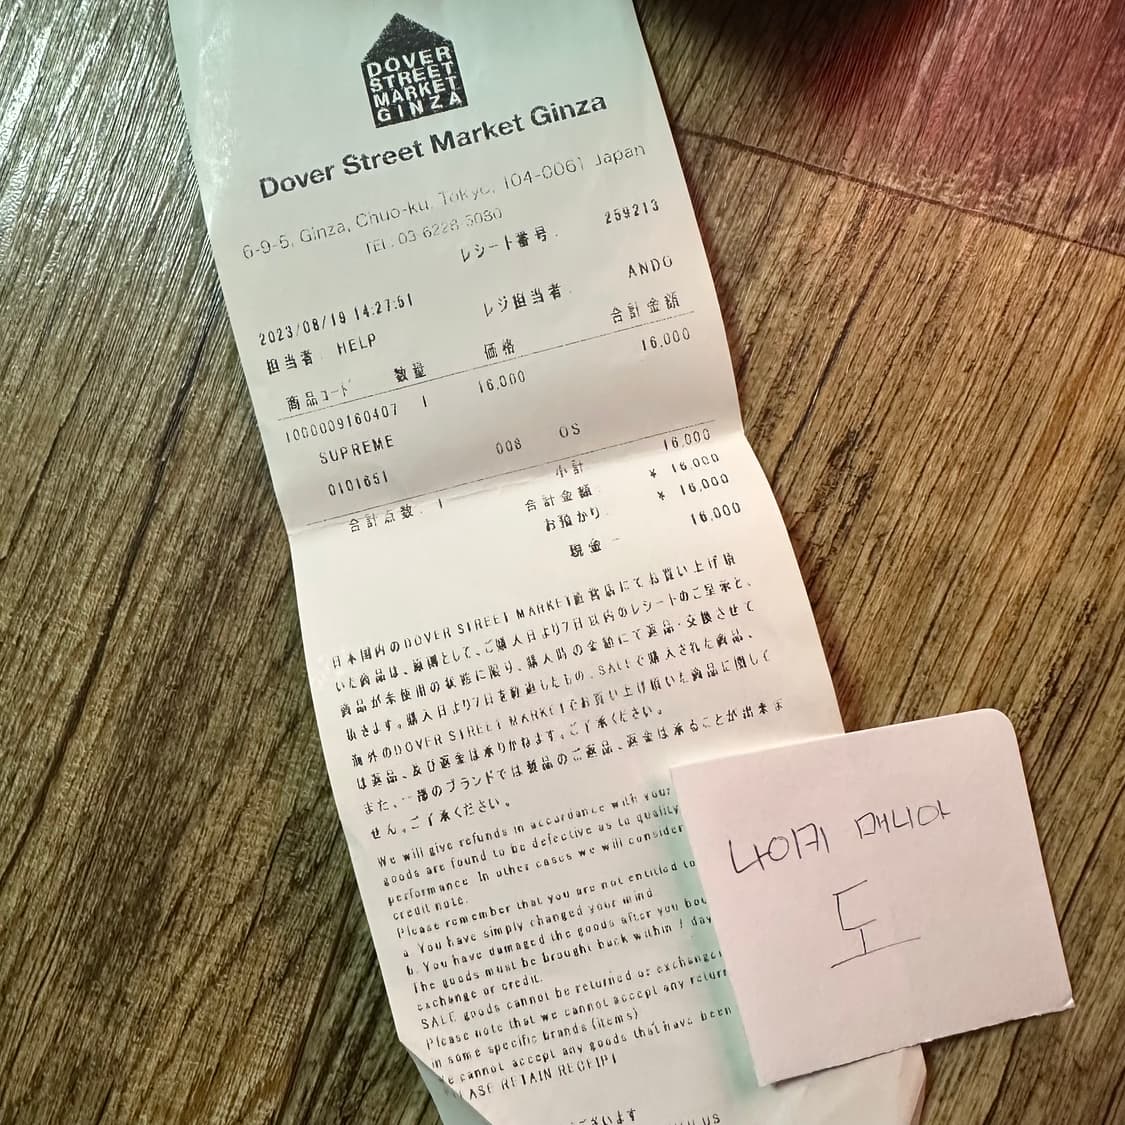 DOVER
STREET
MARKET
GINZA
Dover Street Market Ginza
6-9-5, Ginza, Chuo-ku, Tokyo, 104-0061 Japan
TEL. 03 6228 5080
レシート番号. 259213
2023/08/19 14:27:51 レジ担当者. ANDO
担当者. HELP
商品コード 数量 価格 合計金額
1000009160407 1 16,000 16,000
SUPREME
0101651 008 OS
合計点数. 1 小計 16,000
合計金額. ¥ 16,000
お預かり. ¥ 16,000
現金 - 16,000
日本国内のDOVER STREET MARKET直営店にてお買い上げ頂
いた商品は、原則として、ご購入日より7日以内のレシートのご呈示と、
商品が未使用の状態に限り、購入時の金額にて返品・交換させて
頂きます。購入日より7日を経過したもの、SALEで購入された商品、
海外のDOVER STREET MARKETでお買い上げ頂いた商品に関して
は返品、及び返金は承りかねます。ご了承ください。
また、一部のブランドでは製品のご返品、返金は承ることが出来ま
せん。ご了承ください。
We will give refunds in accordance with your
goods are found to be defective as to quality
performance. In other cases we will consider
credit note.
Please remember that you are not entitled to
a. You have simply changed your mind
b. You have damaged the goods after you bou
The goods must be brought back within 7 day
exchange or credit.
SALE goods cannot be returned or exchange
Please note that we cannot accept any return
in some specific brands (items)
We cannot accept any goods that have been
EASE RETAIN RECEIPT
ございます
US
나이키 매니아
도